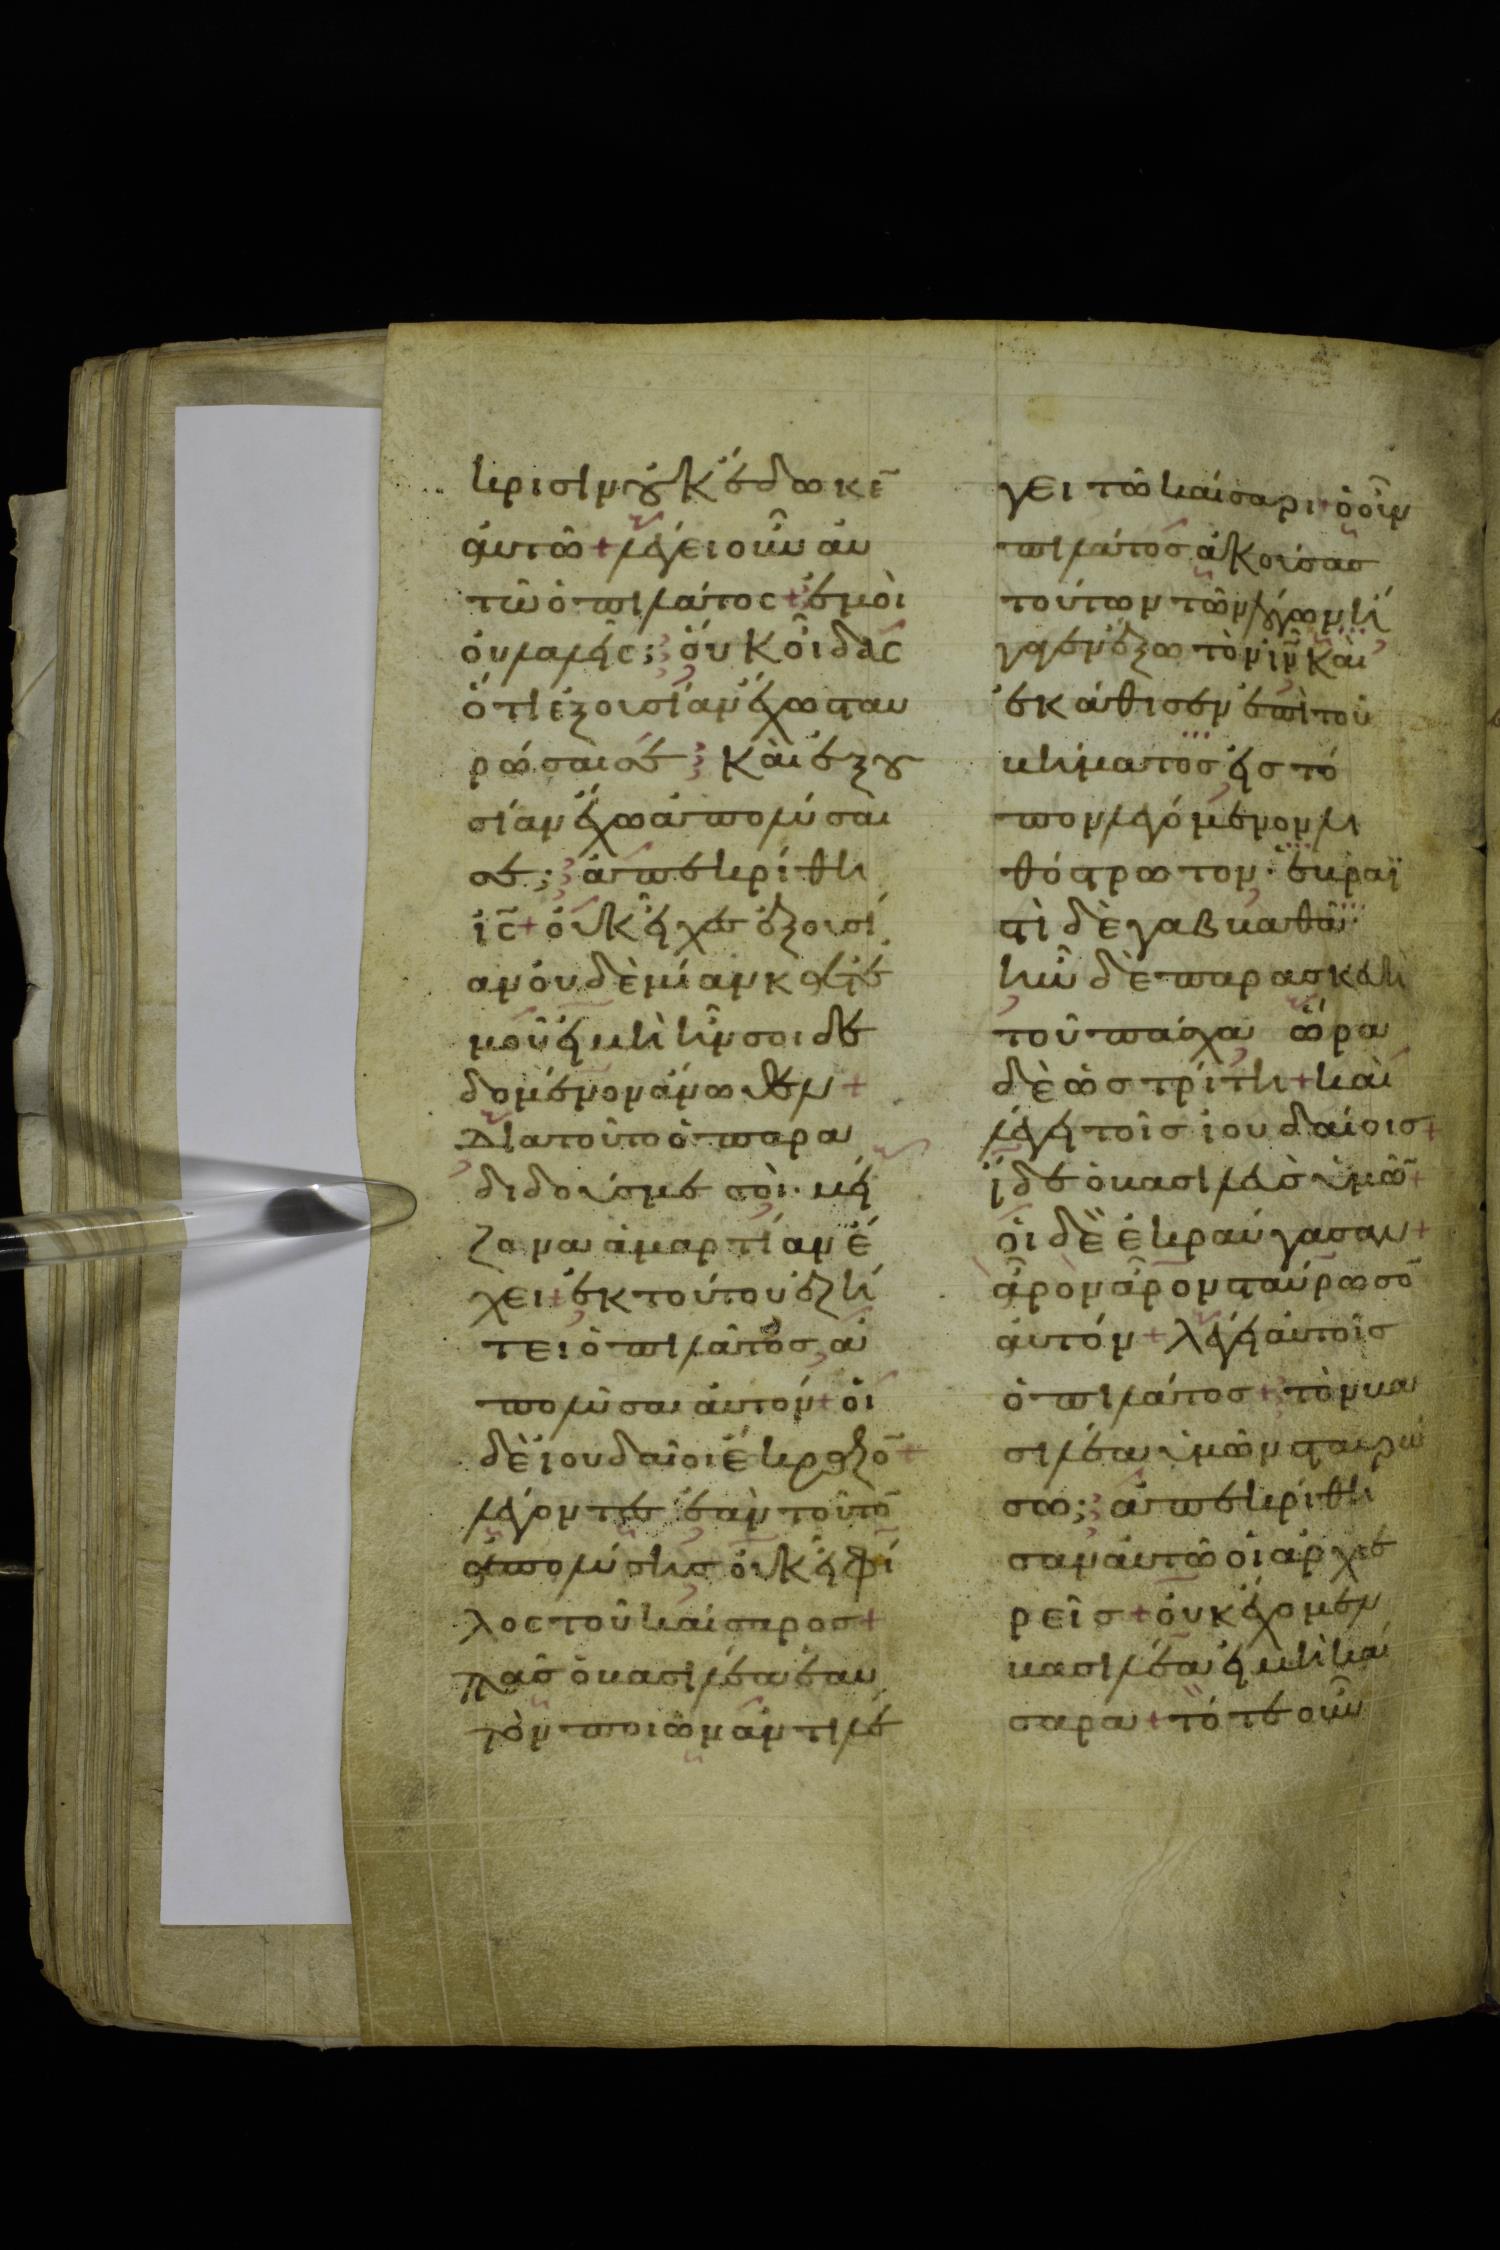 κρισιν οὐκ ἔδωκε̄
ἀυτῶ + λέγει οὖν ἀυ
τῶ ὁ πιλάτος + ἐμοὶ
ὀυ λαλεῖς; ὀυκ οἶδας
ὅτι ἐξουσίαν ἔχω σταυ
ρώσαι σε; καὶ ἐξου
σίαν ἔχω ἀπολύσαι
σε; ἀπεκρίθη
ἰς̄ + ὀυκ εἶχες ἐξουσί
αν ὀυδὲμίαν κατ' ἐ
μοῦ εἰ μὴ ἦν σοι δε
δομένον ἄνωθεν +
Διατοῦτο ὁ παρα
διδούσ με σοὶ· μεί
ζονα ἁμαρτίαν ἔ
χει + ἐκ τούτου ἐζή
τει ὁ πιλᾶτος ἀ
πολῦσαι ἀυτόν + ὁι
δὲ ἰουδαῖοι ἔκραζο̄ +
λέγοντες ἐὰν τοῦτο̄
ἀπολύσης ὀυκ εἶ φί
λος τοῦ καίσαρος +
πᾶς ὁ βασιλέα ἑαυ
τὸν ποιῶν ἀντιλέ
γει τῶ καίσαρι + ὁ οὖν
πιλάτος ἀκούσας
τούτων τῶν λόγων ἤ
γαγεν ἔξω τὸν ἰν̄ καὶ
ἐκάθισεν ἐπὶ τοῦ
βήματος εἰς τό
πον λεγόμενον λι
θόστρωτον· ἑβραϊ
στὶ δὲ γαββαθᾶ·
ἦν δὲ παρασκευὴ
τοῦ πάσχα ὥρα
δὲ ὡς τρίτη + καὶ
λέγει τοῖς ἰουδαίοις +
ἴδε ὁ βασιλεὺς ὑμῶ̄ +
ὁι δὲ ἐκραύγασαν +
ἆρον ἆρον σταύρωσο̄
ἀυτόν + λέγει ἀυτοῖς
ὁ πιλάτος + τὸν βα
σιλέα ὑμῶν σταυρώ
σω; ἀπεκρίθη
σαν ἀυτῶ ὁι ἀρχιε
ρεῖς + ὀυκ ἔχομεν
βασιλέα εἰ μὴ καί
σαρα + τότε οὖν